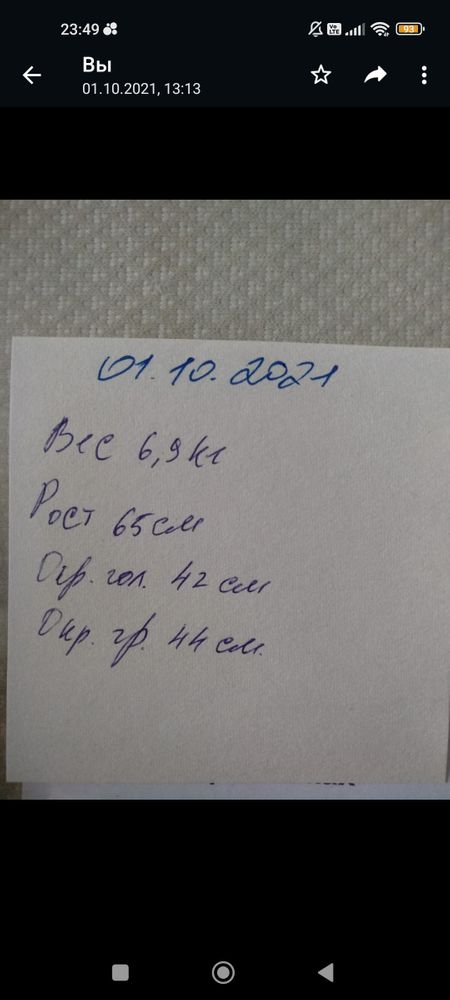 23:49
93
Вы
01.10.2021, 13:13
01.10.2021
Вес 6,9 кг
Рост 65 см
Окр. гол. 42 см
Окр. гр. 44 см.